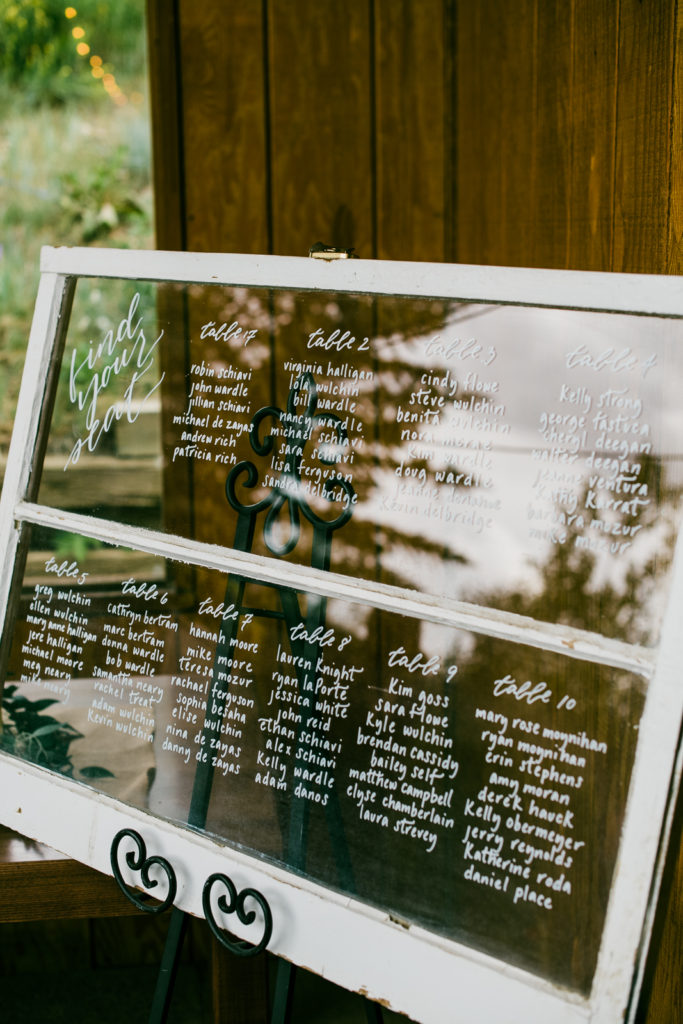 find
your
seat
table 17
robin schiavi
john wardle
jillian schiavi
michael de zayas
andrew rich
patricia rich
table 2
virginia halligan
lola wulchin
bill wardle
nancy wardle
michael schiavi
sara schiavi
lisa ferguson
sandra delbridge
table 3
cindy flowe
steve wulchin
benita wulchin
nora morae
kim wardle
doug wardle
jeanne donahue
kevin delbridge
table 4
kelly strong
george
cheryl deegan
walter deegan
jeane ventura
kathy
barbara mozur
mike mozur
table 5
greg wulchin
ellen wulchin
mary anne halligan
jere halligan
michael moore
meg neary
mike neary
table 6
cathryn bertram
marc bertram
donna wardle
bob wardle
samantha neary
rachel treat
adam wulchin
kevin wulchin
table 7
hannah moore
mike moore
teresa mozur
rachael ferguson
sophia besaha
elise wulchin
nina de zayas
danny de zayas
table 8
lauren knight
ryan laporte
jessica white
john reid
ethan schiavi
alex schiavi
kelly wardle
adam danos
table 9
kim goss
sara flowe
kyle wulchin
brendan cassidy
bailey self
matthew campbell
elyse chamberlain
laura strevey
table 10
mary rose moynihan
ryan moynihan
erin stephens
amy moran
derek hauck
kelly obermeyer
jerry reynolds
katherine roda
daniel place